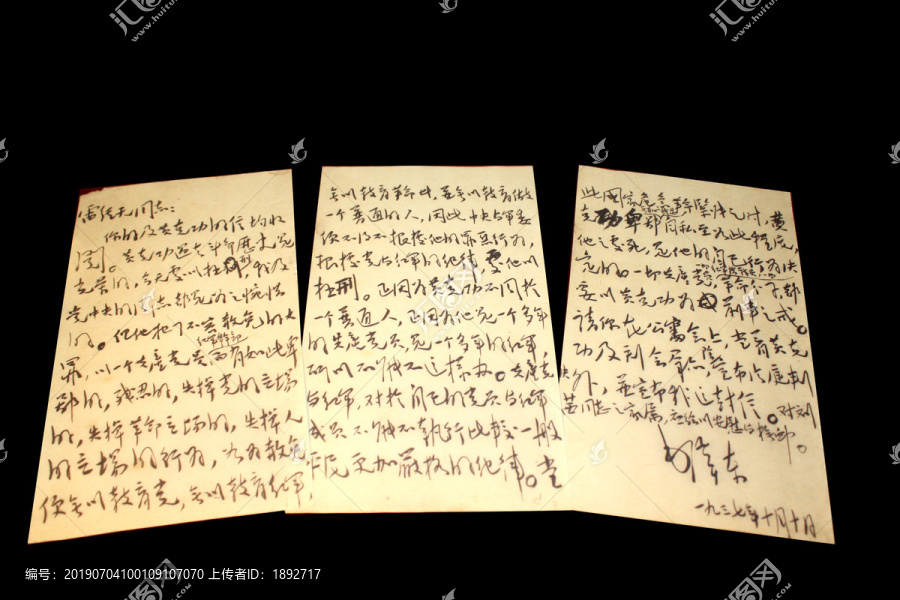 雷经天同志：
你的及黄克功的信均收
阅。黄克功过去斗争历史是
光荣的，今天处以极刑，我及
党中央的同志都是为之惋惜
的。但他犯了不容赦免的大
罪，以一个共产党员红军干部而有如此卑
鄙的，残忍的，失掉党的立场
的，失掉革命立场的，失掉人
的立场的行为，如为赦免，
便无以教育党，无以教育红军，
无以教育革命者，并无以教育做
一个普通的人，因此中央与军委
便不得不根据他的罪恶行为，
根据党与红军的纪律，处他以
极刑。正因为黄克功不同于
一个普通人，正因为他是一个多年
的共产党员，是一个多年的红军，
所以不能不这样办。共产党
与红军，对于自己的党员与红军
成员不能不执行比较一般
平民更加严格的纪律。当
此国家危急革命紧张之时，黄
克功卑鄙无耻残忍自私至如此程度，
他之处死，是他的自己行为决
定的。一切共产党员，一切红军指战员，一切革命分子，都
要以黄克功为前车之戒。
请你在公审会上，当着黄克
功及到会群众，除宣布法庭判
决外，并宣布我这封信。对刘
茜同志之家属，应给以安慰与抚恤。
毛泽东
一九三七年十月十日
汇图网
www.huitu.com
编号：20190704100109107070 上传者ID：1892717